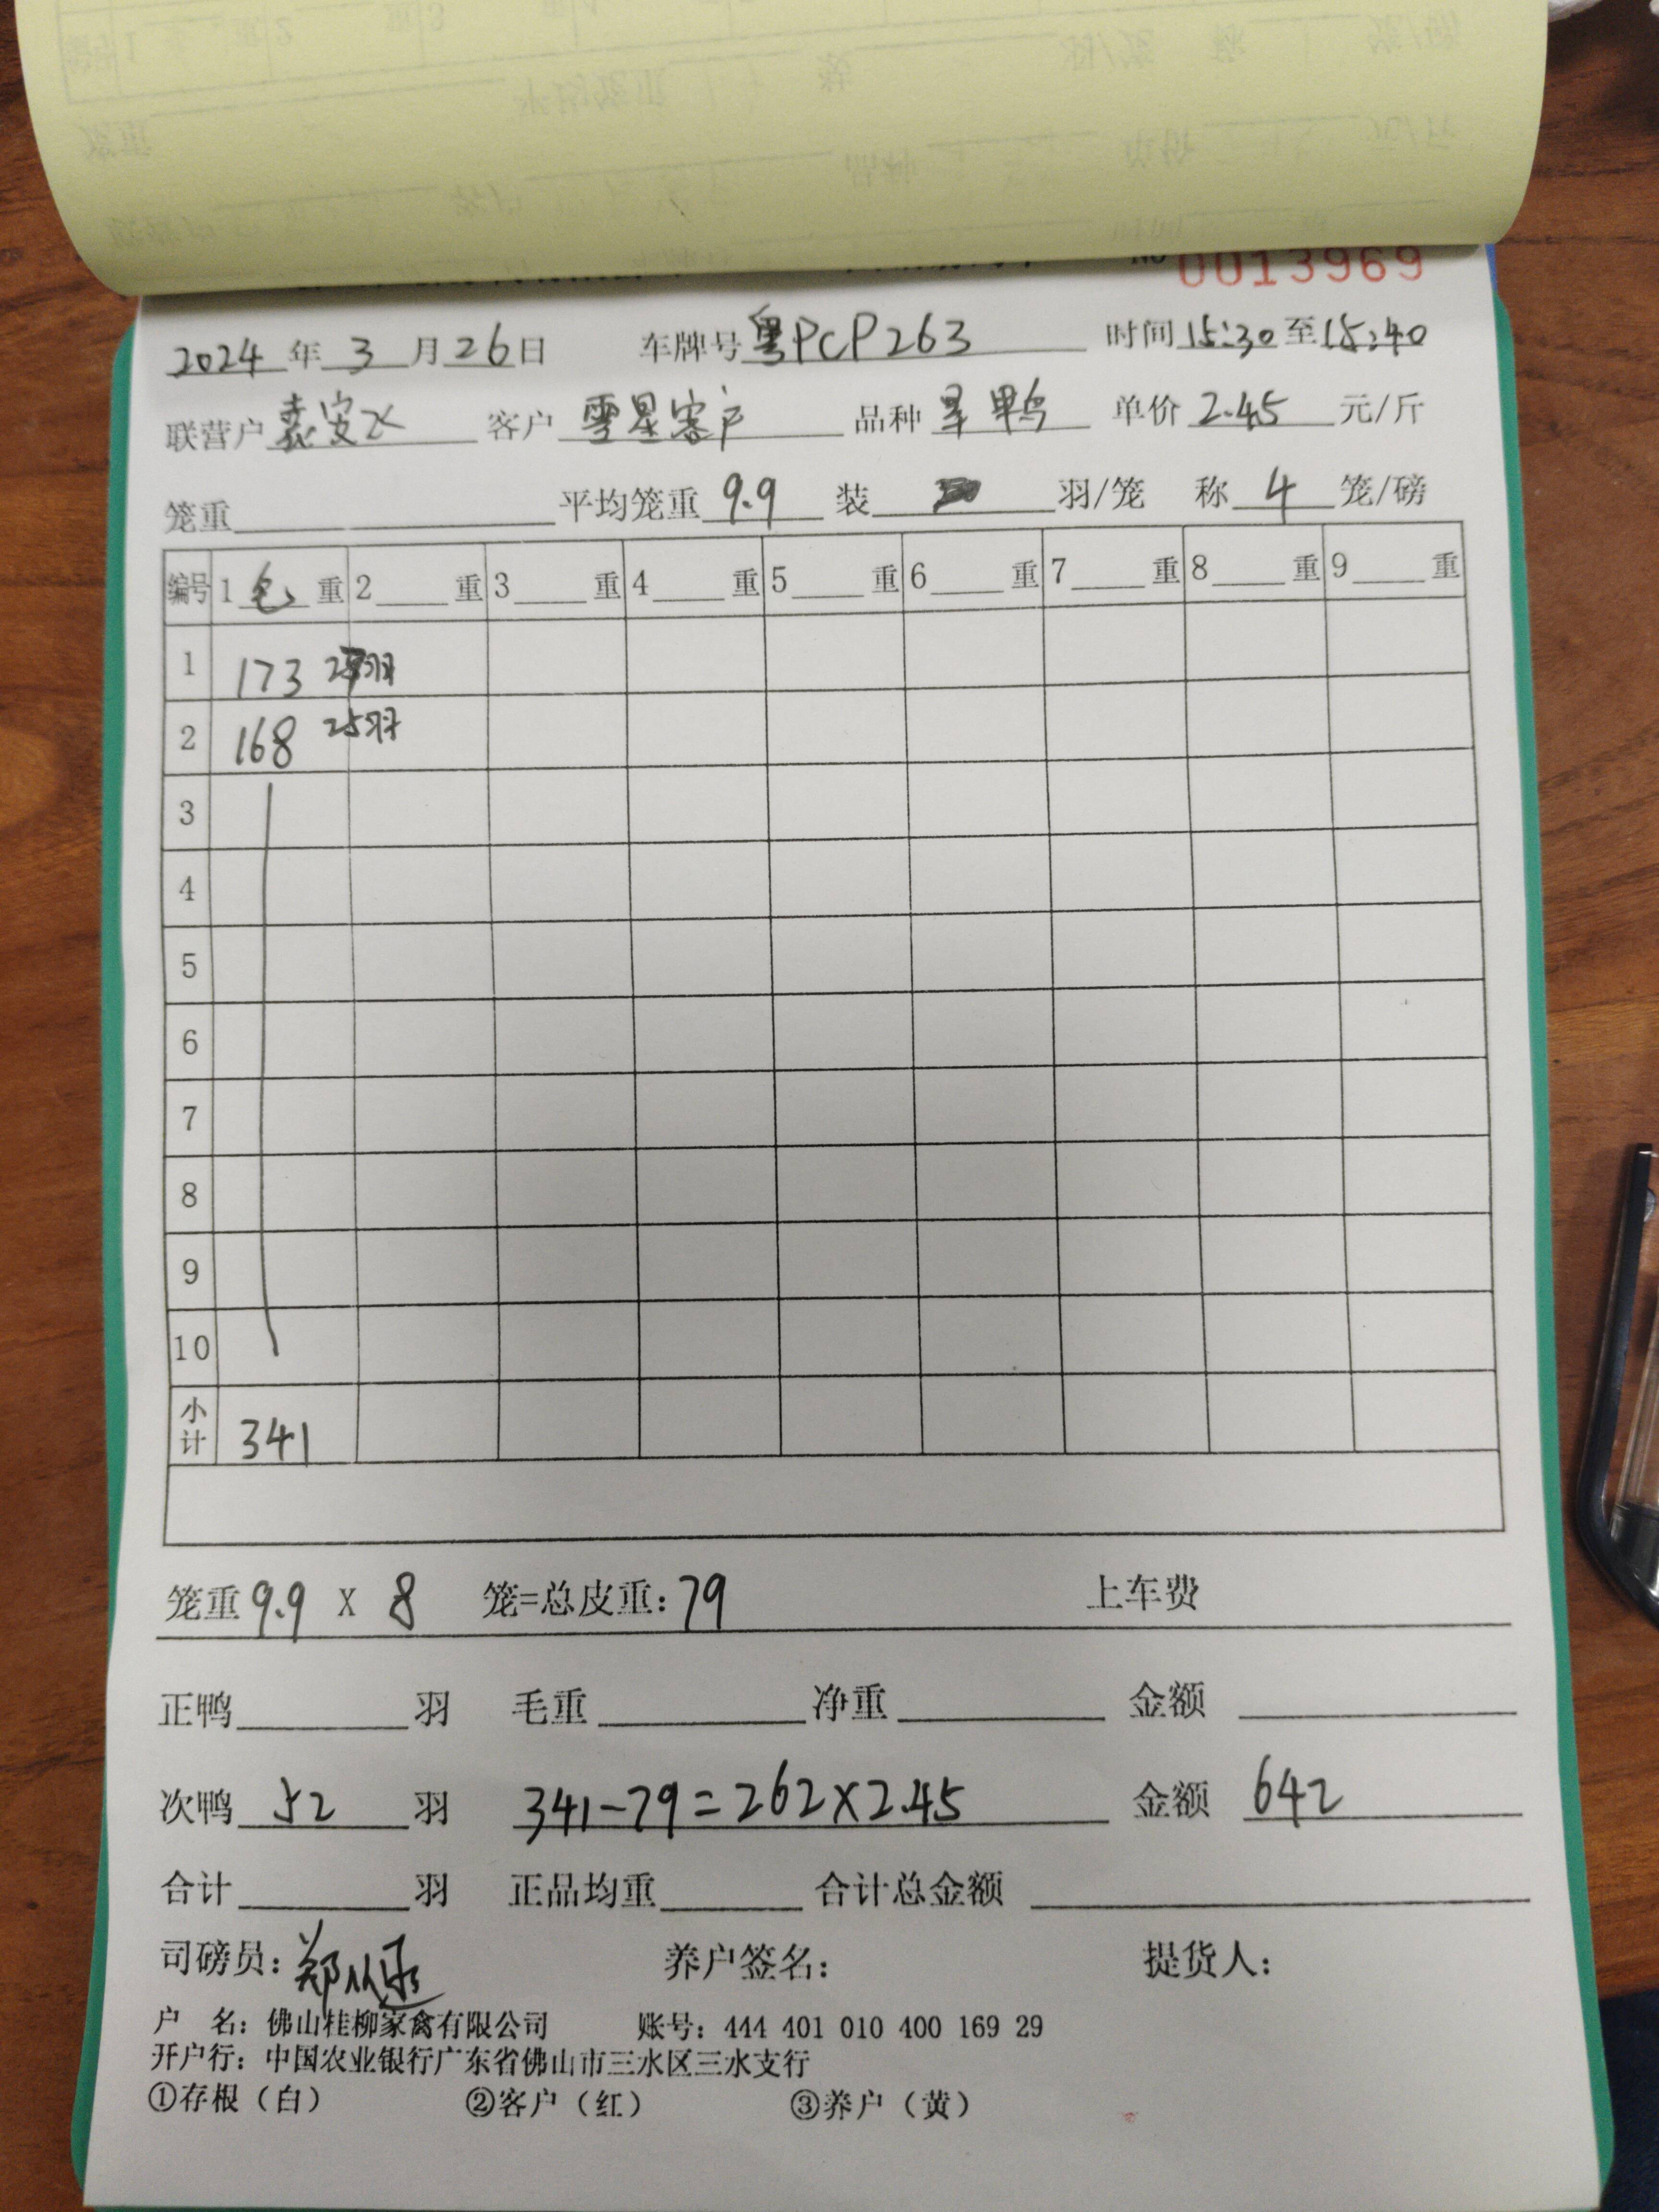 No 0013969
2024年3月26日 车牌号粤PCP263 时间15:30至15:40
联营户袁安 客户雪星客户 品种旱鸭 单价2.45元/斤
笼重 平均笼重9.9 装 羽/笼 称4笼/磅
编号 1毛重 2重 3重 4重 5重 6重 7重 8重 9重
1 173 羽
2 168 25羽
3
4
5
6
7
8
9
10
小计 341
笼重9.9 X 8 笼=总皮重:79 上车费
正鸭 羽 毛重 净重 金额
次鸭 52 羽 341-79=262×2.45 金额 642
合计 羽 正品均重 合计总金额
司磅员: 郑 养户签名: 提货人:
户 名: 佛山桂柳家禽有限公司 账号: 444 401 010 400 169 29
开户行: 中国农业银行广东省佛山市三水区三水支行
①存根（白） ②客户（红） ③养户（黄）